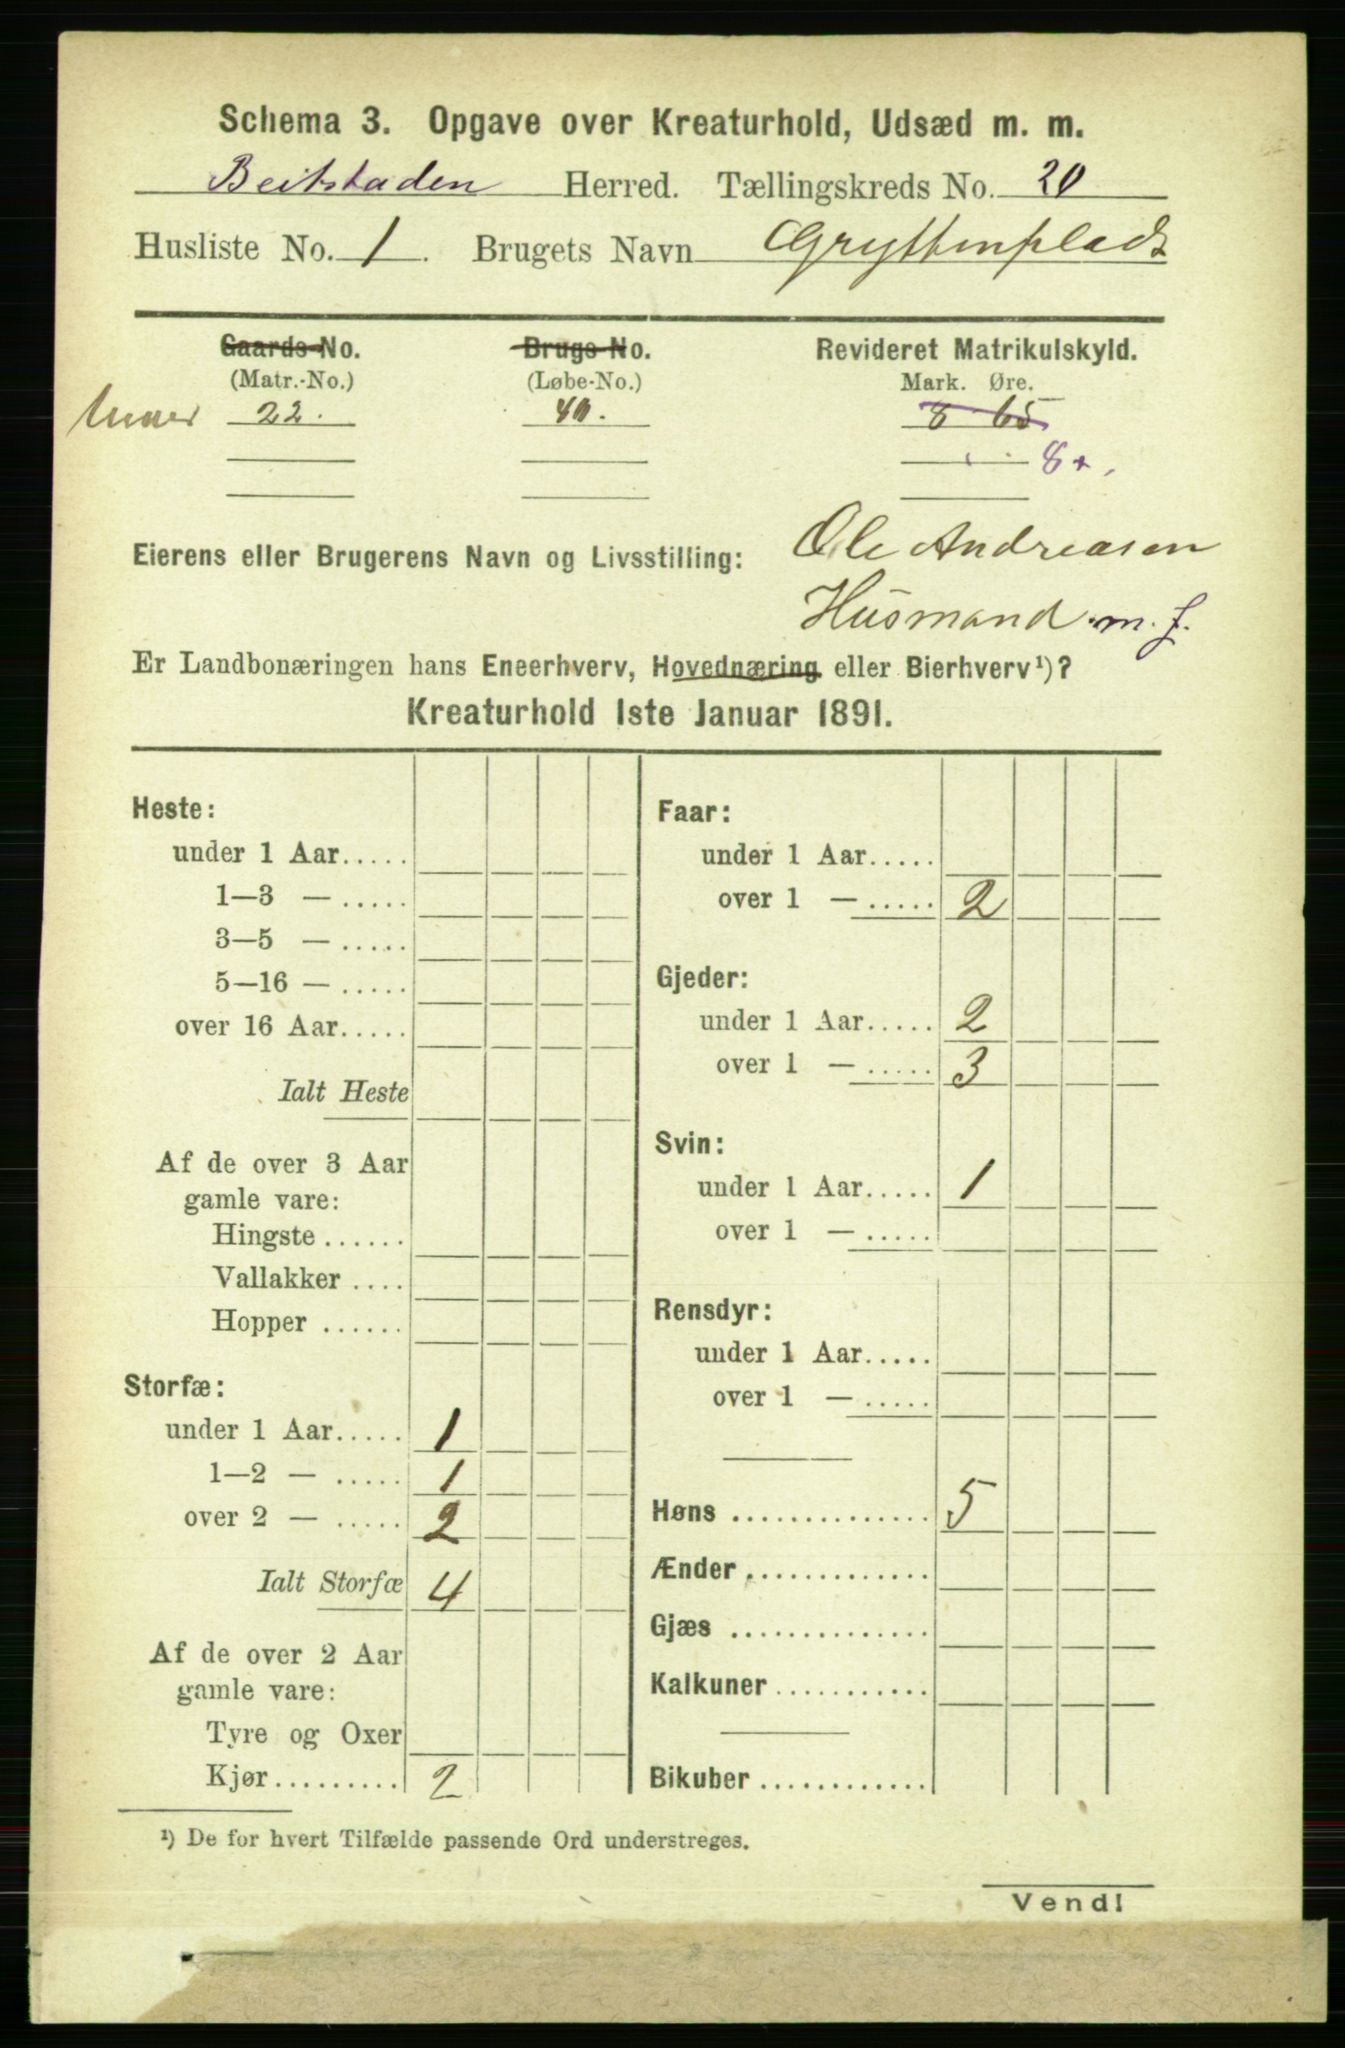 Schema 3. Opgave over Kreaturhold, Udsæd m. m.
Beitstaden Herred. Tællingskreds No. 20
Husliste No. 1. Brugets Navn Gryttenplads
Gaards-No. Brugs-No. Revideret Matrikulskyld.
(Matr.-No.) (Løbe-No.) Mark. Øre.
22. 40. 8 65
8
Eierens eller Brugerens Navn og Livsstilling: Ole Andreasen
Husmand m. j.
Er Landbonæringen hans Eneerhverv, Hovednæring eller Bierhverv¹)?
Kreaturhold 1ste Januar 1891.
Heste:
under 1 Aar.....
1—3 — .....
3—5 — .....
5—16 — .....
over 16 Aar.....
Ialt Heste
Af de over 3 Aar
gamle vare:
Hingste ......
Vallakker ....
Hopper ......
Storfæ:
under 1 Aar..... 1
1—2 — ..... 1
over 2 — ..... 2
Ialt Storfæ 4
Af de over 2 Aar
gamle vare:
Tyre og Oxer
Kjør......... 2
Faar:
under 1 Aar.....
over 1 — ..... 2
Gjeder:
under 1 Aar..... 2
over 1 — ..... 3
Svin:
under 1 Aar..... 1
over 1 — .....
Rensdyr:
under 1 Aar.....
over 1 — .....
Høns .............. 5
Ænder .............
Gjæs ..............
Kalkuner ...........
Bikuber ............
¹) De for hvert Tilfælde passende Ord understreges.
Vend!